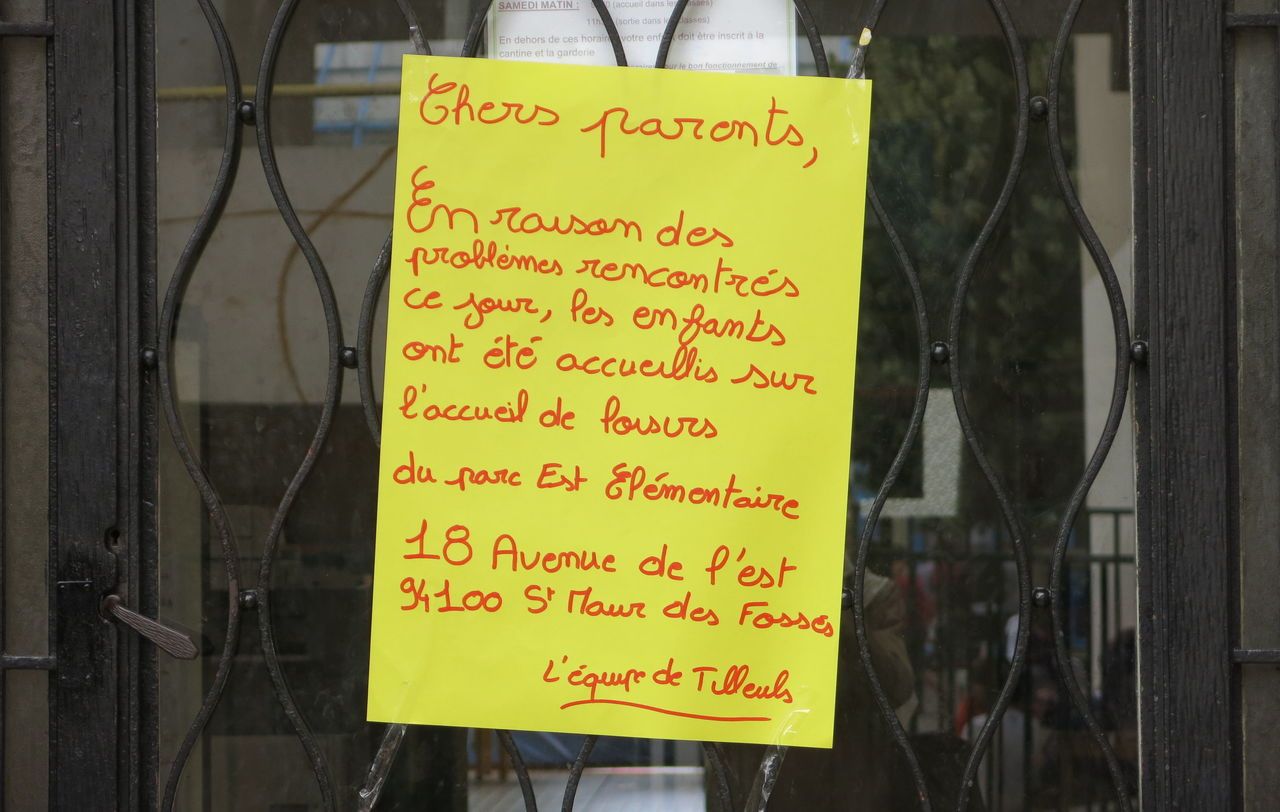 SAMEDI MATIN : (accueil dans les classes)
(sortie dans les
En dehors de ces horaires votre enfant doit être inscrit à la
cantine et la garderie
pour le bon fonctionnement de
Chers parents,
En raison des
problèmes rencontrés
ce jour, les enfants
ont été accueillis sur
l'accueil de loisirs
du parc Est Elémentaire
18 Avenue de l'est
94100 St Maur des Fossés
L'équipe de Tilleuls